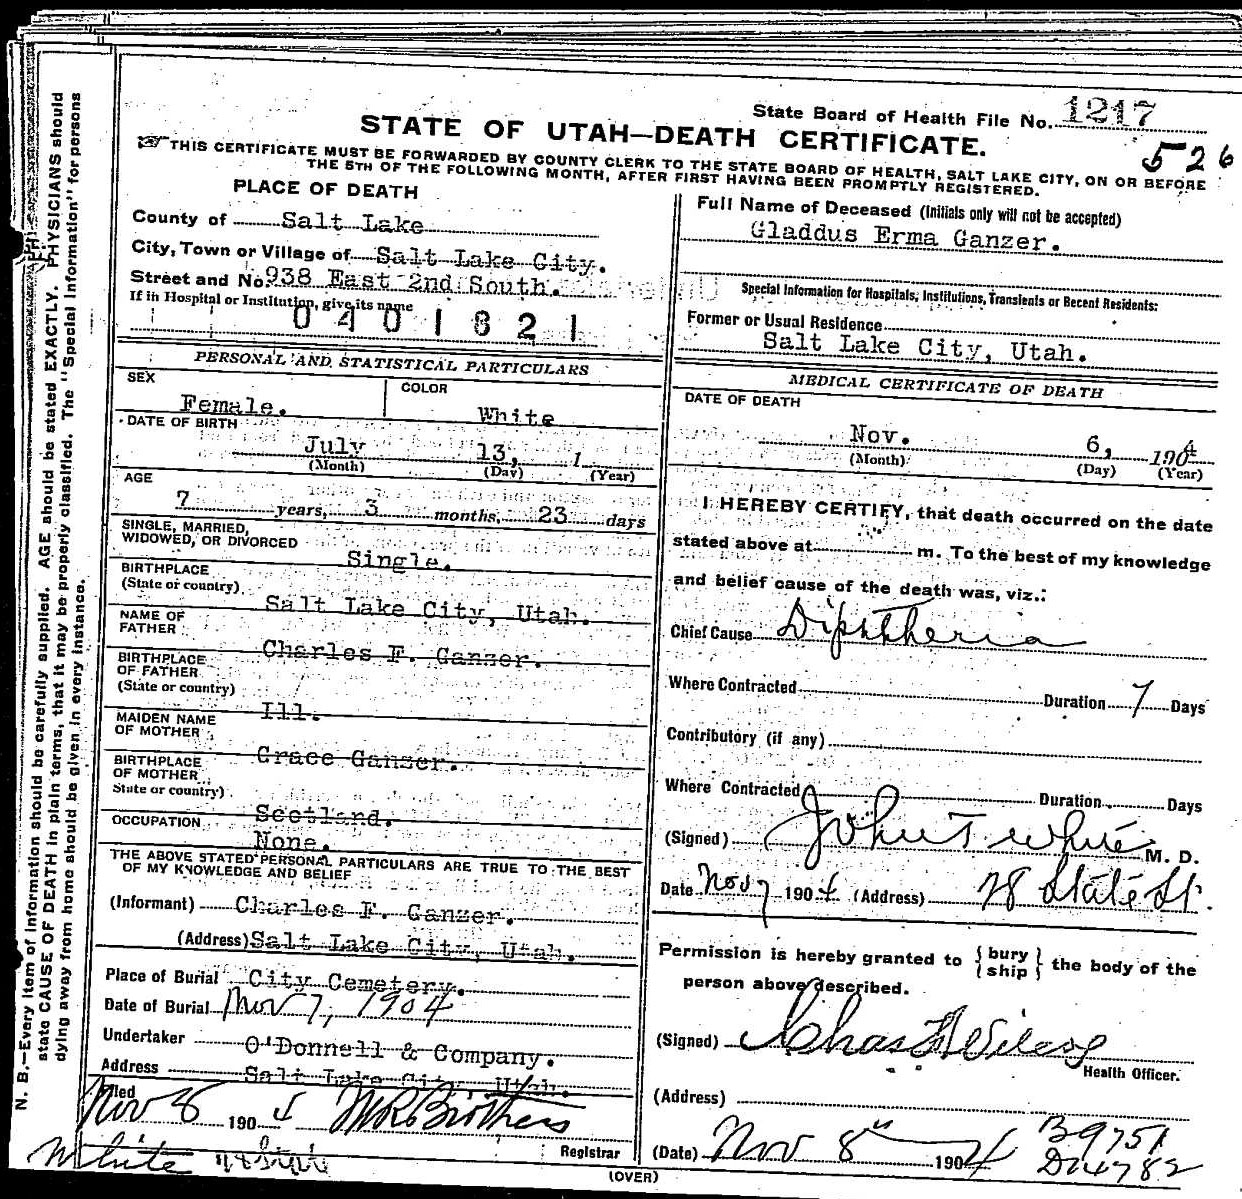 State Board of Health File No. 1217
STATE OF UTAH—DEATH CERTIFICATE.
526
☞ THIS CERTIFICATE MUST BE FORWARDED BY COUNTY CLERK TO THE STATE BOARD OF HEALTH, SALT LAKE CITY, ON OR BEFORE
THE 5TH OF THE FOLLOWING MONTH, AFTER FIRST HAVING BEEN PROMPTLY REGISTERED.
PLACE OF DEATH
County of Salt Lake
City, Town or Village of Salt Lake City.
Street and No. 938 East 2nd South.
If in Hospital or Institution, give its name
0401821
PERSONAL AND STATISTICAL PARTICULARS
SEX
Female.
COLOR
White
DATE OF BIRTH
July 13, 1
(Month) (Day) (Year)
AGE
7 years, 3 months, 23 days
SINGLE, MARRIED,
WIDOWED, OR DIVORCED
Single.
BIRTHPLACE
(State or country)
Salt Lake City, Utah.
NAME OF
FATHER
Charles F. Ganzer.
BIRTHPLACE
OF FATHER
(State or country)
Ill.
MAIDEN NAME
OF MOTHER
Grace Ganzer.
BIRTHPLACE
OF MOTHER
State or country)
Scotland.
OCCUPATION
None.
THE ABOVE STATED PERSONAL PARTICULARS ARE TRUE TO THE BEST
OF MY KNOWLEDGE AND BELIEF
(Informant) Charles F. Ganzer.
(Address) Salt Lake City, Utah.
Place of Burial City Cemetery.
Date of Burial Nov 7, 1904
Undertaker O'Donnell & Company.
Address Salt Lake City Utah.
Filed
Nov 8 1904 M R Brothers
Registrar
White 78 State
Full Name of Deceased (Initials only will not be accepted)
Gladdus Erma Ganzer.
Special Information for Hospitals, Institutions, Transients or Recent Residents:
Former or Usual Residence
Salt Lake City, Utah.
MEDICAL CERTIFICATE OF DEATH
DATE OF DEATH
Nov. 6, 1904
(Month) (Day) (Year)
I HEREBY CERTIFY, that death occurred on the date
stated above at m. To the best of my knowledge
and belief cause of the death was, viz.:
Chief Cause Diphtheria
Where Contracted Duration 7 Days
Contributory (if any)
Where Contracted Duration Days
(Signed) John T White M. D.
Date Nov 7 1904 (Address) 78 State St.
Permission is hereby granted to { bury } the body of the
{ ship }
person above described.
(Signed) Chas
Health Officer.
(Address)
(Date) Nov 8 1904
B9751
D14782
(OVER)
N. B.—Every item of information should be carefully supplied. AGE should be stated EXACTLY. PHYSICIANS should
state CAUSE OF DEATH in plain terms, that it may be properly classified. The "Special Information" for persons
dying away from home should be given in every instance.